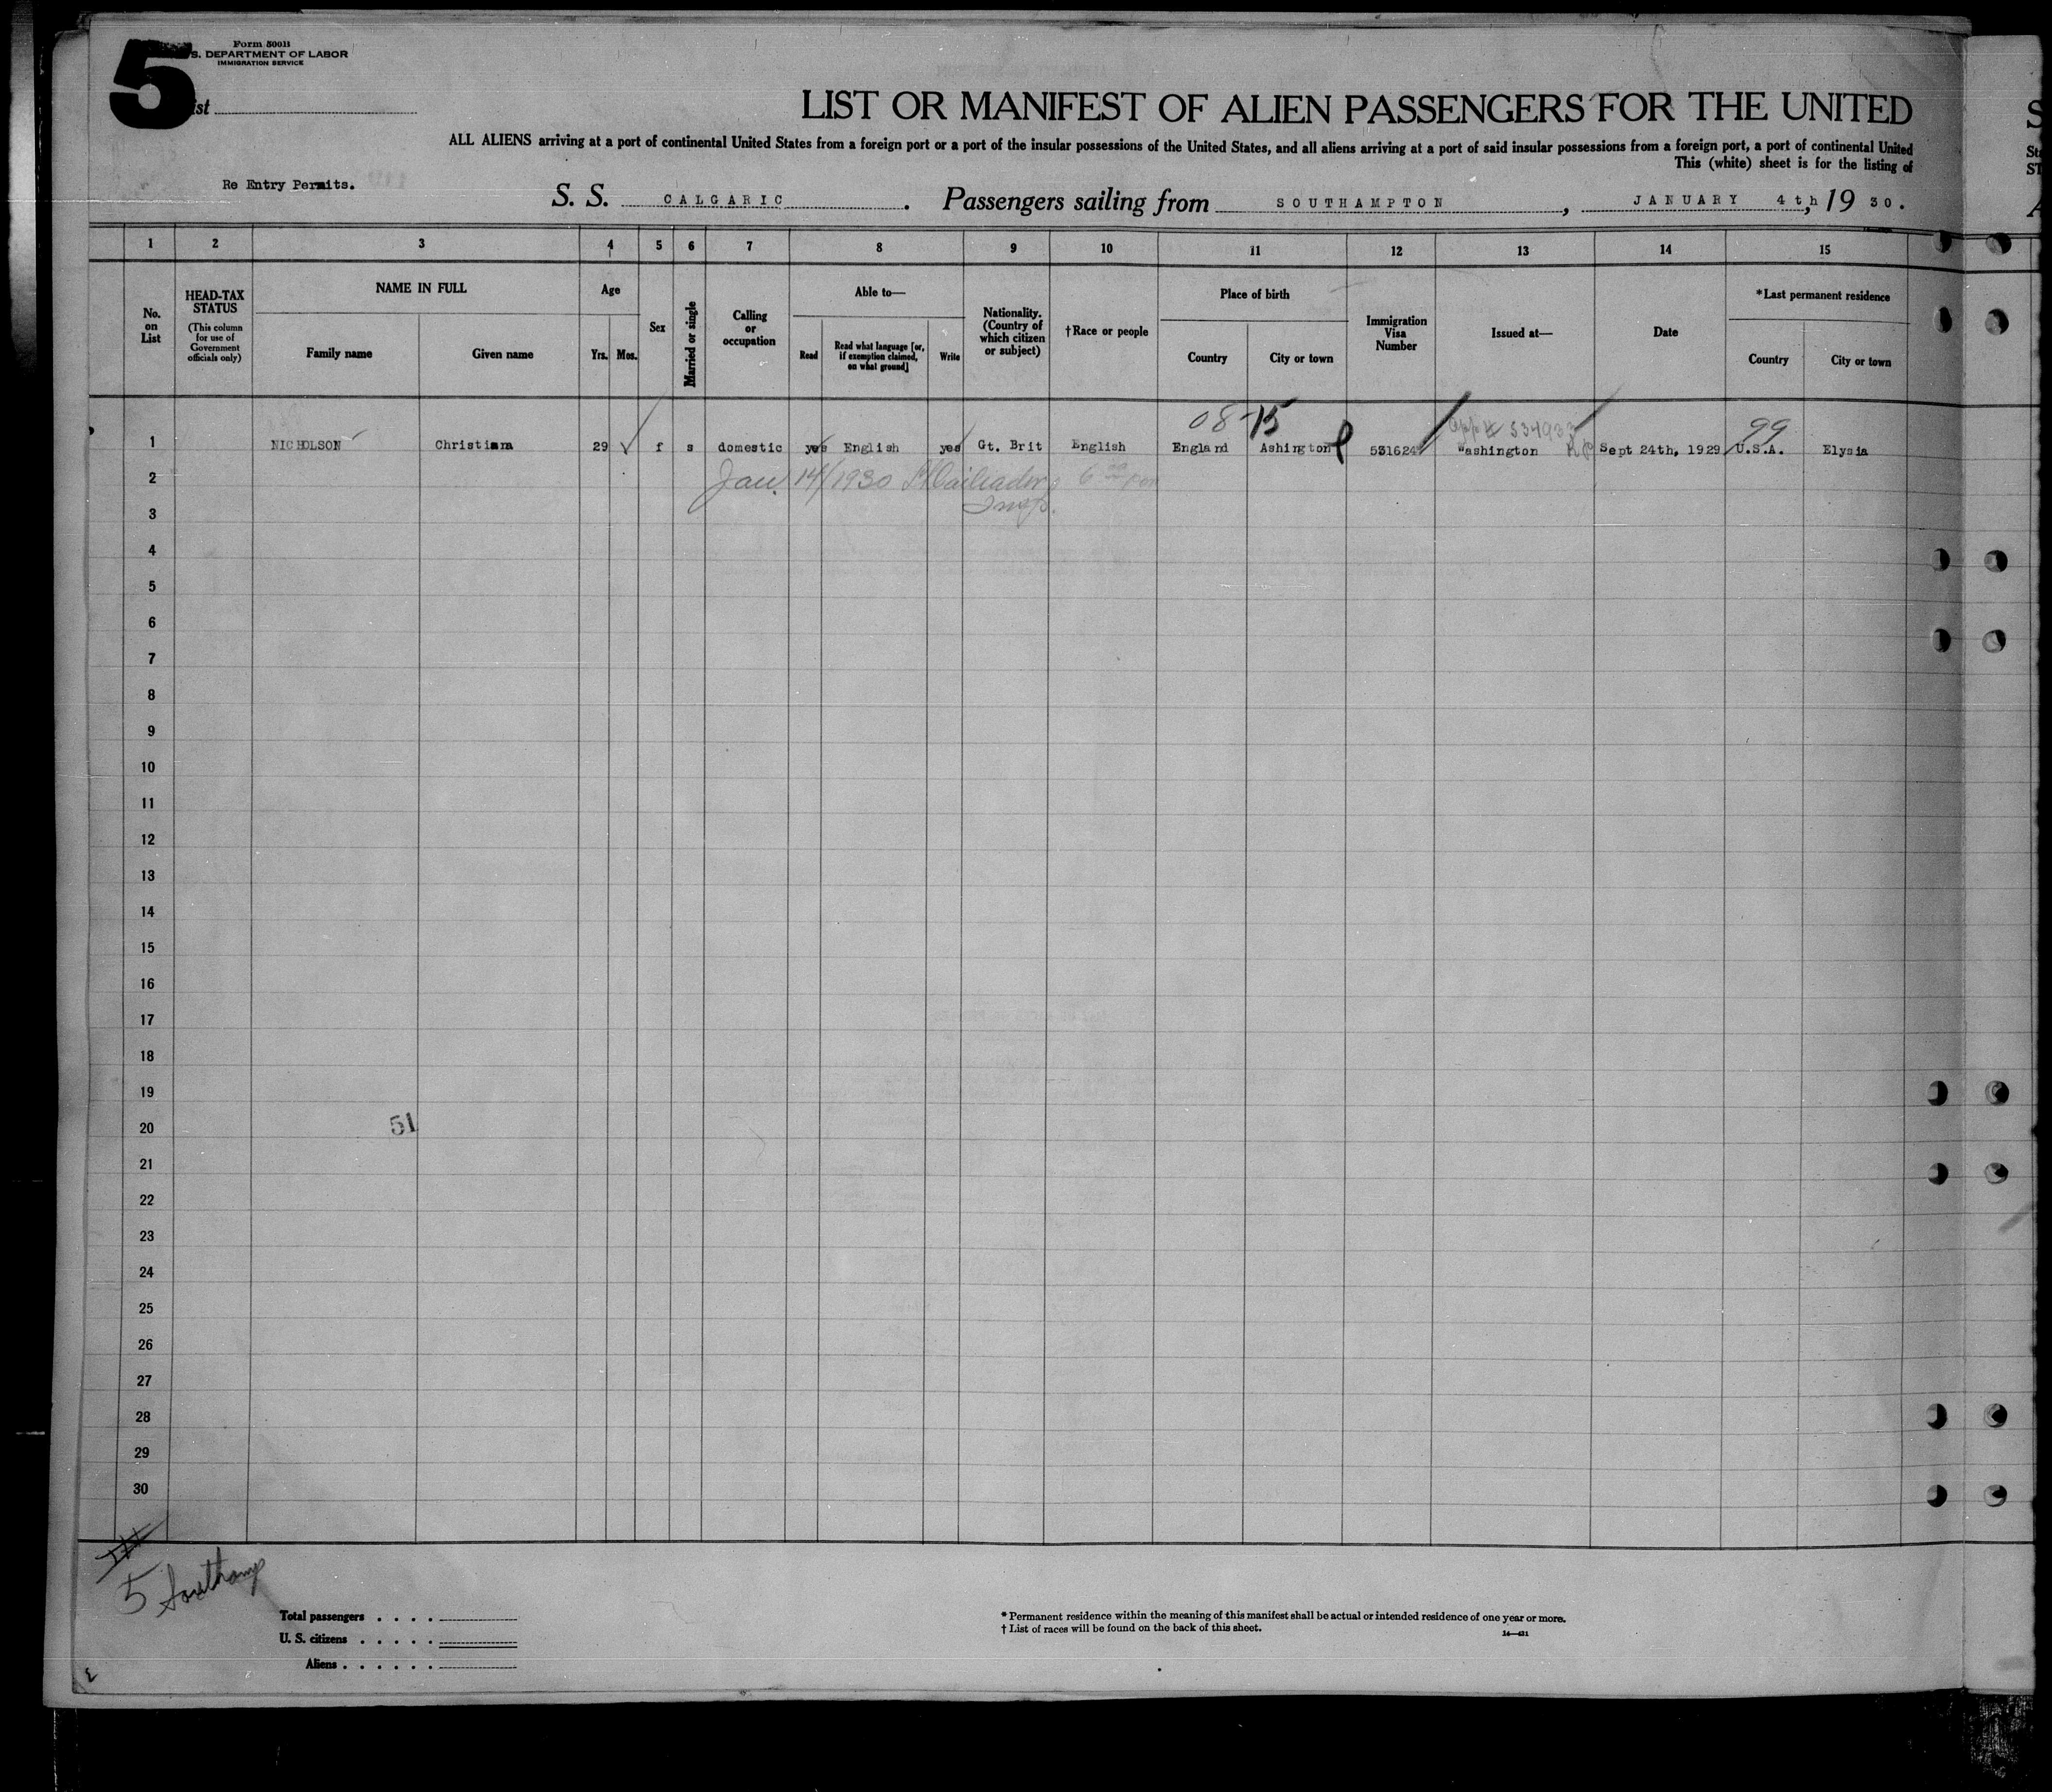 5
Form 500B
S. DEPARTMENT OF LABOR
IMMIGRATION SERVICE
ist
LIST OR MANIFEST OF ALIEN PASSENGERS FOR THE UNITED
ALL ALIENS arriving at a port of continental United States from a foreign port or a port of the insular possessions of the United States, and all aliens arriving at a port of said insular possessions from a foreign port, a port of continental United
This (white) sheet is for the listing of
Re Entry Permits.
S. S. CALGARIC. Passengers sailing from SOUTHAMPTON, JANUARY 4th, 19 30.
1 2 3 4 5 6 7 8 9 10 11 12 13 14 15
No. on List
HEAD-TAX STATUS
(This column for use of Government officials only)
NAME IN FULL
Family name
Given name
Age
Yrs. Mos.
Sex
Married or single
Calling or occupation
Able to—
Read
Read what language [or, if exemption claimed, on what ground]
Write
Nationality. (Country of which citizen or subject)
†Race or people
Place of birth
Country
City or town
Immigration Visa Number
Issued at—
Date
*Last permanent residence
Country
City or town
08-15 App# 334933 99
1 NICHOLSON Christiana 29 f s domestic yes English yes Gt. Brit English England Ashington 531624 Washington Sept 24th, 1929 U.S.A. Elysia
2 Jan. 14/1930
3 Insp.
4
5
6
7
8
9
10
11
12
13
14
15
16
17
18
19
20 51
21
22
23
24
25
26
27
28
29
30
5 Southamp
Total passengers
U. S. citizens
Aliens
* Permanent residence within the meaning of this manifest shall be actual or intended residence of one year or more.
† List of races will be found on the back of this sheet.